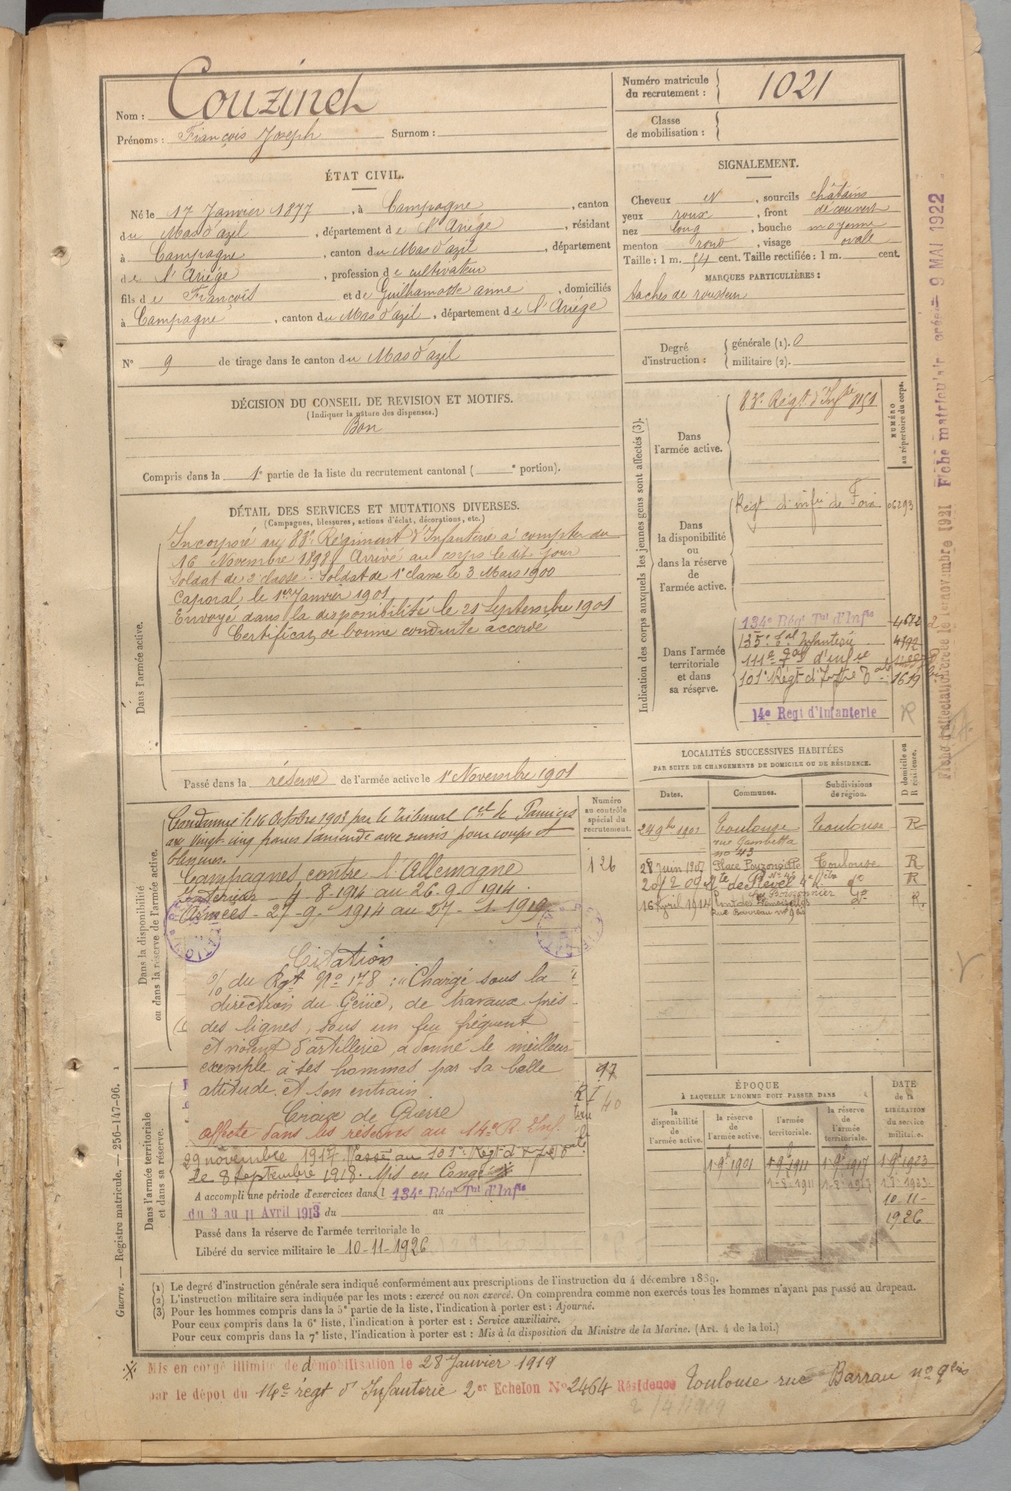 Nom : Couzinch
Prénoms : François Joseph Surnom :
Numéro matricule du recrutement : 1021
Classe de mobilisation :
ÉTAT CIVIL.
Né le 17 Janvier 1877, à Campagne, canton
du Mas d'azil, département de l'Ariège, résidant
à Campagne, canton du Mas d'azil, département
de l'Ariège, profession de cultivateur
fils de François et de Guilhamotte anne, domiciliés
à Campagne, canton du Mas d'azil, département de l'Ariège
N° 9 de tirage dans le canton du Mas d'azil
SIGNALEMENT.
Cheveux N, sourcils châtains
yeux roux, front découvert
nez long, bouche moyenne
menton rond, visage ovale
Taille : 1 m. 54 cent. Taille rectifiée : 1 m. cent.
MARQUES PARTICULIÈRES :
taches de rousseur
Degré d'instruction : générale (1). 0
militaire (2).
DÉCISION DU CONSEIL DE REVISION ET MOTIFS.
(Indiquer la nature des dispenses.)
Bon
Compris dans la 1e partie de la liste du recrutement cantonal ( e portion).
DÉTAIL DES SERVICES ET MUTATIONS DIVERSES.
(Campagnes, blessures, actions d'éclat, décorations, etc.)
Dans l'armée active.
Incorporé au 83e Régiment d'Infanterie à compter du
16 Novembre 1898. Arrivé au corps le dit jour
Soldat de 2e classe. Soldat de 1e classe le 3 Mars 1900
Caporal, le 1er Janvier 1901
Envoyé dans la disponibilité le 21 Septembre 1901
Certificat de bonne conduite accordé
Passé dans la réserve de l'armée active le 1er Novembre 1901
Indication des corps auxquels les jeunes gens sont affectés (3).
NUMÉRO au répertoire du corps.
Dans l'armée active.
83e Régt d'Infrie
Dans la disponibilité ou dans la réserve de l'armée active.
Régt d'infrie de Foix
Dans l'armée territoriale et dans sa réserve.
134e Régt Tal d'Infie 4672
135e tal Infanterie 4192
111e d'infie
101e Régt d'Infie 1619
14e Regt d'Infanterie R
LOCALITÉS SUCCESSIVES HABITÉES
PAR SUITE DE CHANGEMENTS DE DOMICILE OU DE RÉSIDENCE.
Dates. Communes. Subdivisions de région. D domicile ou R résidence.
Toulouse Toulouse R
rue Gambetta
no 43
28 juin 1907 Toulouse R
R
16 Avril 1914 R
Dans la disponibilité ou dans la réserve de l'armée active.
Numéro au contrôle spécial du recrutement.
126
Condamné le 16 octobre 1903 par le Tribunal Cel de Pamiers
aux vingt-cinq francs d'amende avec sursis pour coups et
blessures
Campagnes contre l'Allemagne
Intérieur 4-8-1914 au 26-9-1914.
Armées - 27-9-1914 au 27-1-1919
Citation
O/ du Rgt No 178 : "Chargé sous la
direction du Génie, de travaux près
des lignes, sous un feu fréquent
et violent d'artillerie, a donné le meilleur
exemple à ses hommes par sa belle
attitude et son entrain
Croix de Guerre
Affecté dans les réserves au 14e R. Inf.
Dans l'armée territoriale et dans sa réserve.
97
40
29 novembre 1917. Passé au 101e Régt
le 8 Septembre 1918. Mis en Congé
A accompli une période d'exercices dans l 134e Régt Tal d'Infie
du 3 au 11 Avril 1913 du au
Passé dans la réserve de l'armée territoriale le
Libéré du service militaire le 10-11-1926
ÉPOQUE
À LAQUELLE L'HOMME DOIT PASSER DANS
la disponibilité de l'armée active. la réserve de l'armée active. l'armée territoriale. la réserve de l'armée territoriale.
DATE de la LIBÉRATION du service militaire.
1-9bre 1901 1-9bre 1911 1-9bre 1917 1-9bre 1923
10-11-
1926
(1) Le degré d'instruction générale sera indiqué conformément aux prescriptions de l'instruction du 4 décembre 1889.
(2) L'instruction militaire sera indiquée par les mots : exercé ou non exercé. On comprendra comme non exercés tous les hommes n'ayant pas passé au drapeau.
(3) Pour les hommes compris dans la 5e partie de la liste, l'indication à porter est : Ajourné.
Pour ceux compris dans la 6e liste, l'indication à porter est : Service auxiliaire.
Pour ceux compris dans la 7e liste, l'indication à porter est : Mis à la disposition du Ministre de la Marine. (Art. 4 de la loi.)
Mis en congé illimité de démobilisation le 28 Janvier 1919
par le dépot du 14e régt d'Infanterie 2er Echelon No 2464 Résidence Toulouse rue Barrau no 9 bis
Guerre. — Registre matricule. — 256-147-96.
Fiche d'affectation créée le 1er novembre 1921 Fiche matriculaire créée le 9 MAI 1922